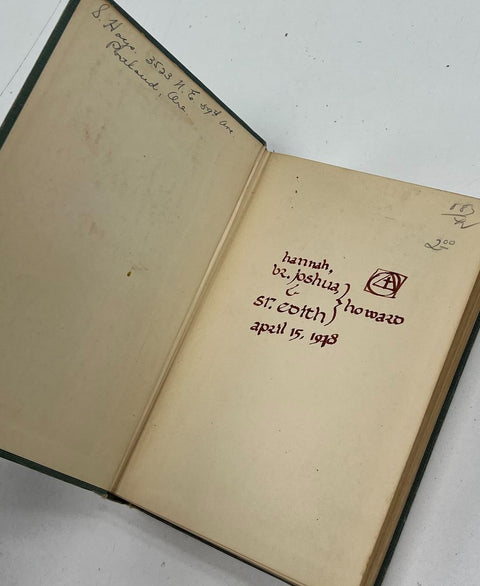 S. Hays. 3523 N. E 59th Ave.
Portland, Ore.
hannah,
br. joshua,
&
sr. edith } howard
april 15, 1978
2.00